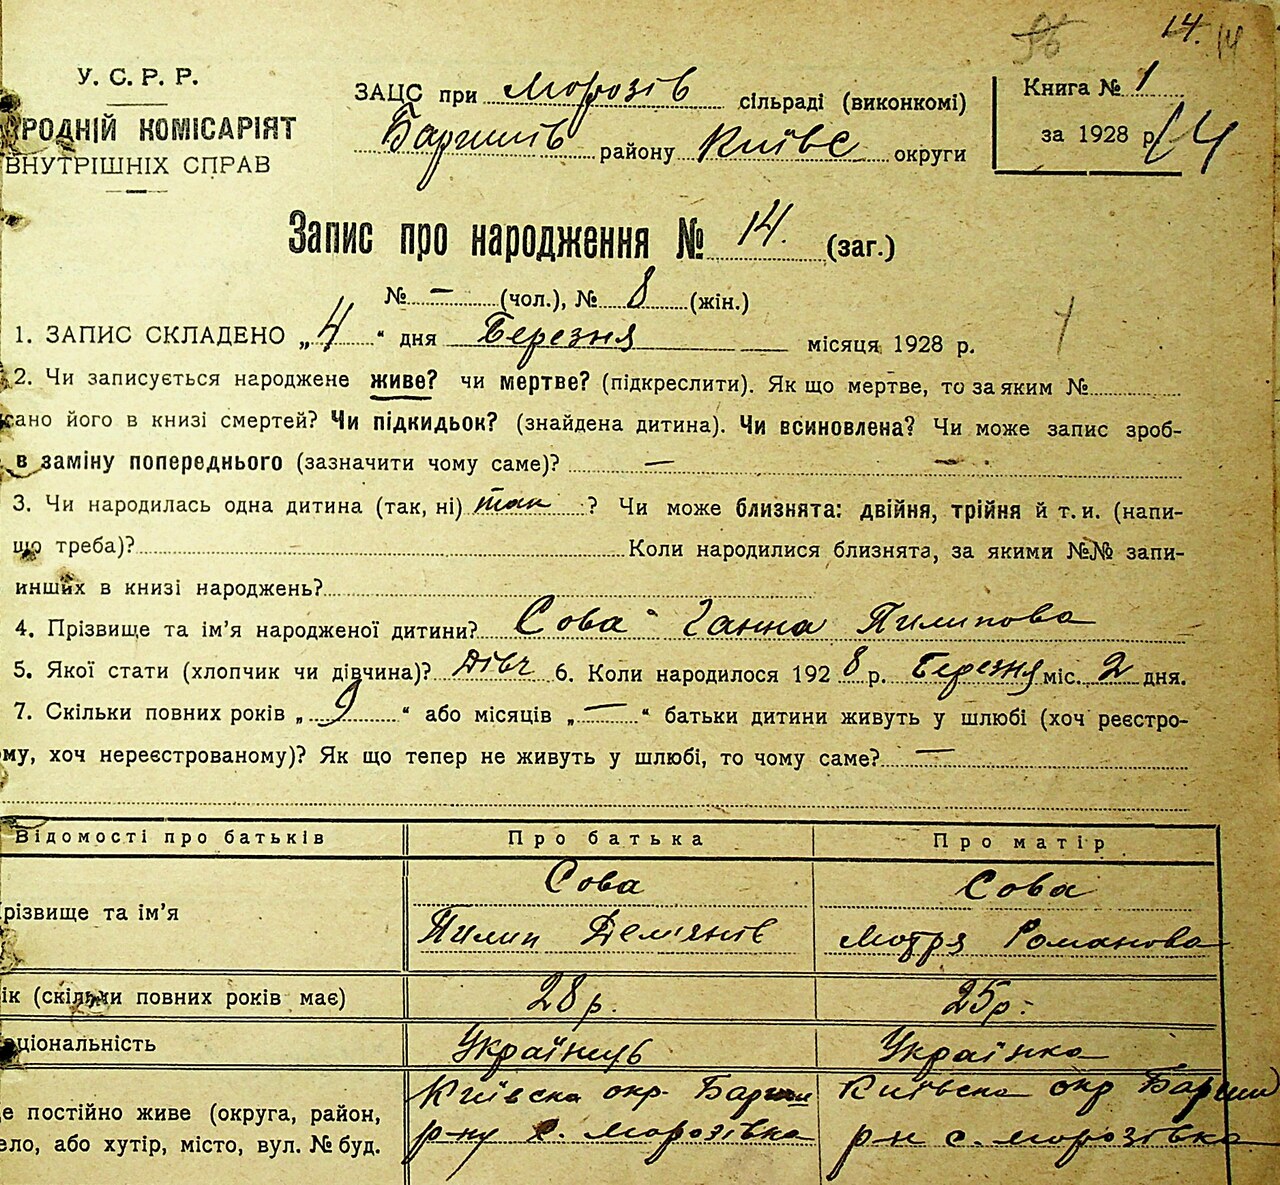 14. 14
У. С. Р. Р.
РОДНІЙ КОМІСАРІЯТ
ВНУТРІШНІХ СПРАВ
ЗАЦС при Морозів сільраді (виконкомі)
Баришів району Київс округи
Книга № 1
за 1928 р. 14
Запис про народження № 14. (заг.)
№ – (чол.), № 8 (жін.)
1. ЗАПИС СКЛАДЕНО „4“ дня Березня місяця 1928 р.
2. Чи записується народжене живе? чи мертве? (підкреслити). Як що мертве, то за яким №
сано його в книзі смертей? Чи підкидьок? (знайдена дитина). Чи всиновлена? Чи може запис зроб-
в заміну попереднього (зазначити чому саме)? — —
3. Чи народилась одна дитина (так, ні) так ? Чи може близнята: двійня, трійня й т. и. (напи-
що треба)? Коли народилися близнята, за якими №№ запи-
инших в книзі народжень?
4. Прізвище та ім’я народженої дитини? Сова Ганна Пилипова
5. Якої стати (хлопчик чи дівчина)? дівч 6. Коли народилось 1928 р. Березня міс. 2 дня.
7. Скільки повних років „9“ або місяців „—“ батьки дитини живуть у шлюбі (хоч реєстро-
му, хоч нереєстрованому)? Як що тепер не живуть у шлюбі, то чому саме? —
Відомості про батьків Про батька Про матір
різвище та ім’я Сова Пилип Дем'янів Сова Мотря Романова
ік (скільки повних років має) 28 р. 25 р.
аціональність Українець Українка
е постійно живе (округа, район, Київска окр. Бариш Київска окр Бариш
ело, або хутір, місто, вул. № буд. р-ну с. Морозівка р-н с. Морозівка